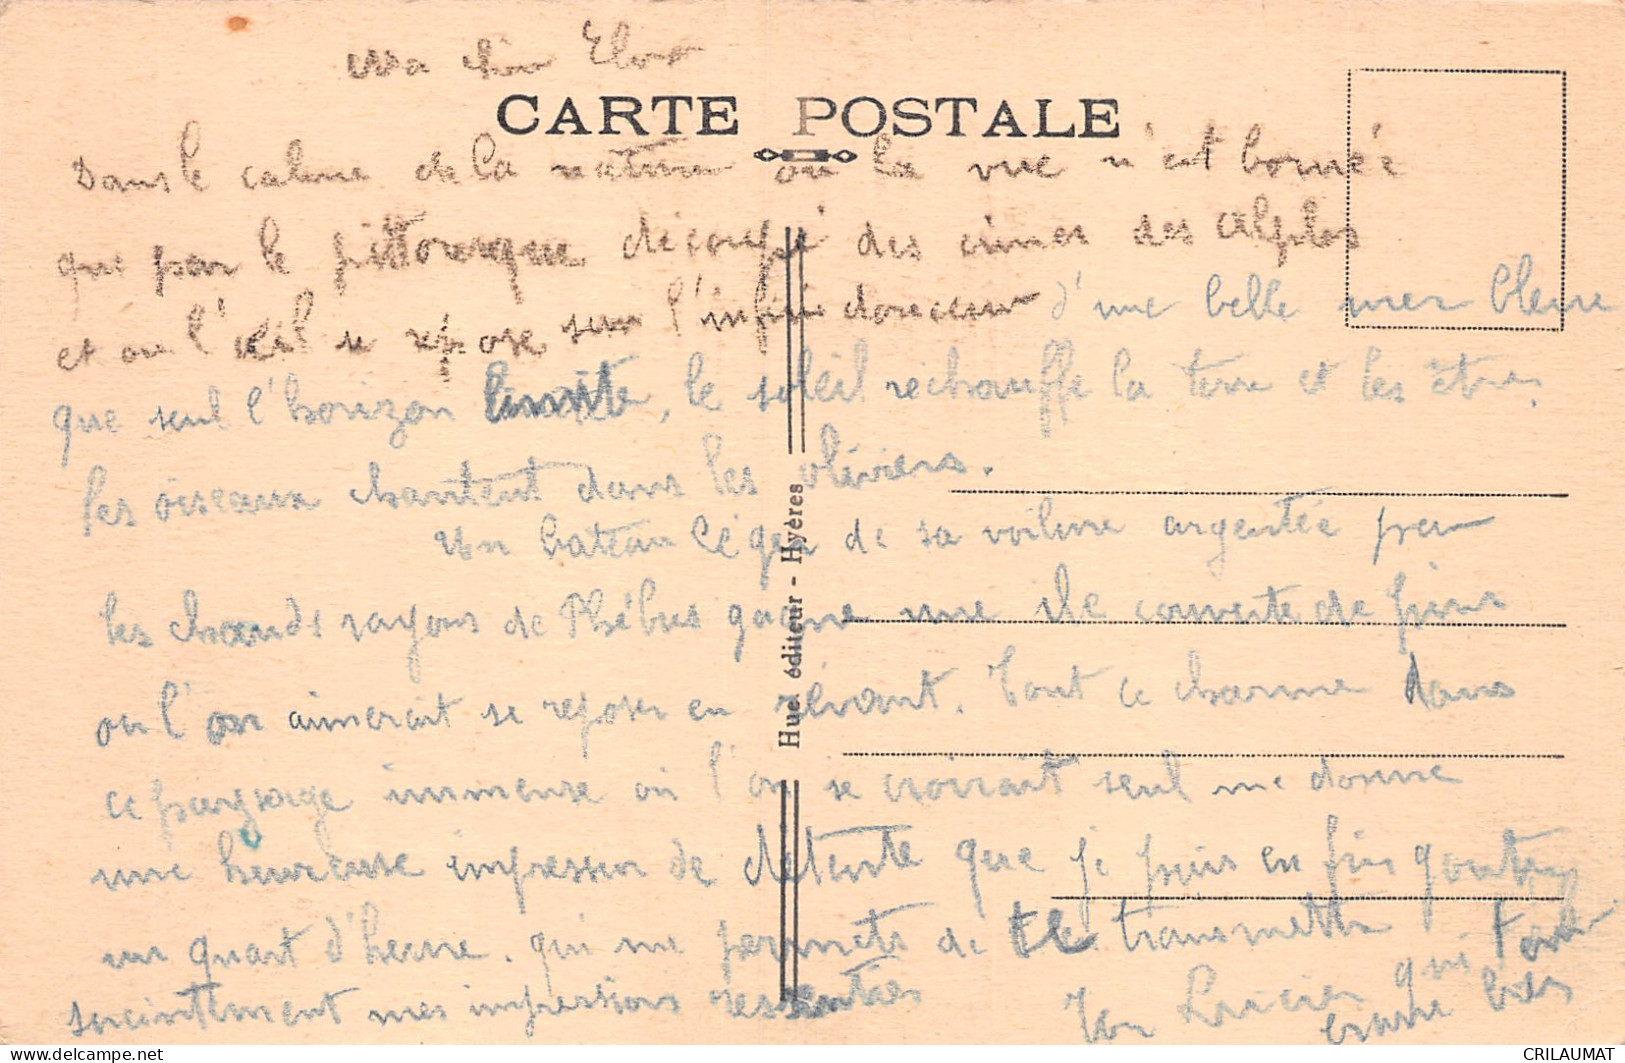 Ma chère
CARTE POSTALE
Dans le calme de la nature où la vue n'est bornée
que par le pittoresque découpé des cimes des Alpes
et ou l'œil se repose sur l'infinie douceur d'une belle mer bleue
que seul l'horizon limite, le soleil rechauffe la terre et les êtres.
les oiseaux chantent dans les oliviers.
Un bateau léger de sa voilure argentée par
les chauds rayons de Phébus gagne une ile couverte de pins
ou l'on aimerait se reposer en rêvant. Tout ce charme dans
ce paysage immense où l'on se croirait seul me donne
une heureuse impression de détente que je puis enfin gouter
un quart d'heure. qui me permets de te transmettre
succintement mes impressions ressenties
Ton Lucien qui t'em
brasse bien
Hue, éditeur - Hyères
CRILAUMAT